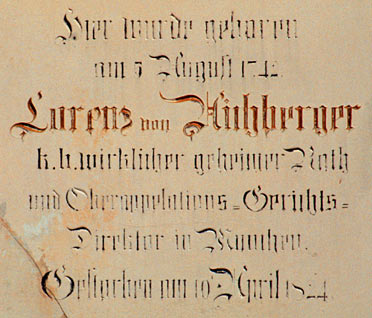 Hier wurde geboren
am 5 August 1742
Lorenz von Aichberger
k.b. wirklicher geheimer Rath
und Oberappelations=Gerichts=
Direktor in München.
Gestorben am 10 April 1824.